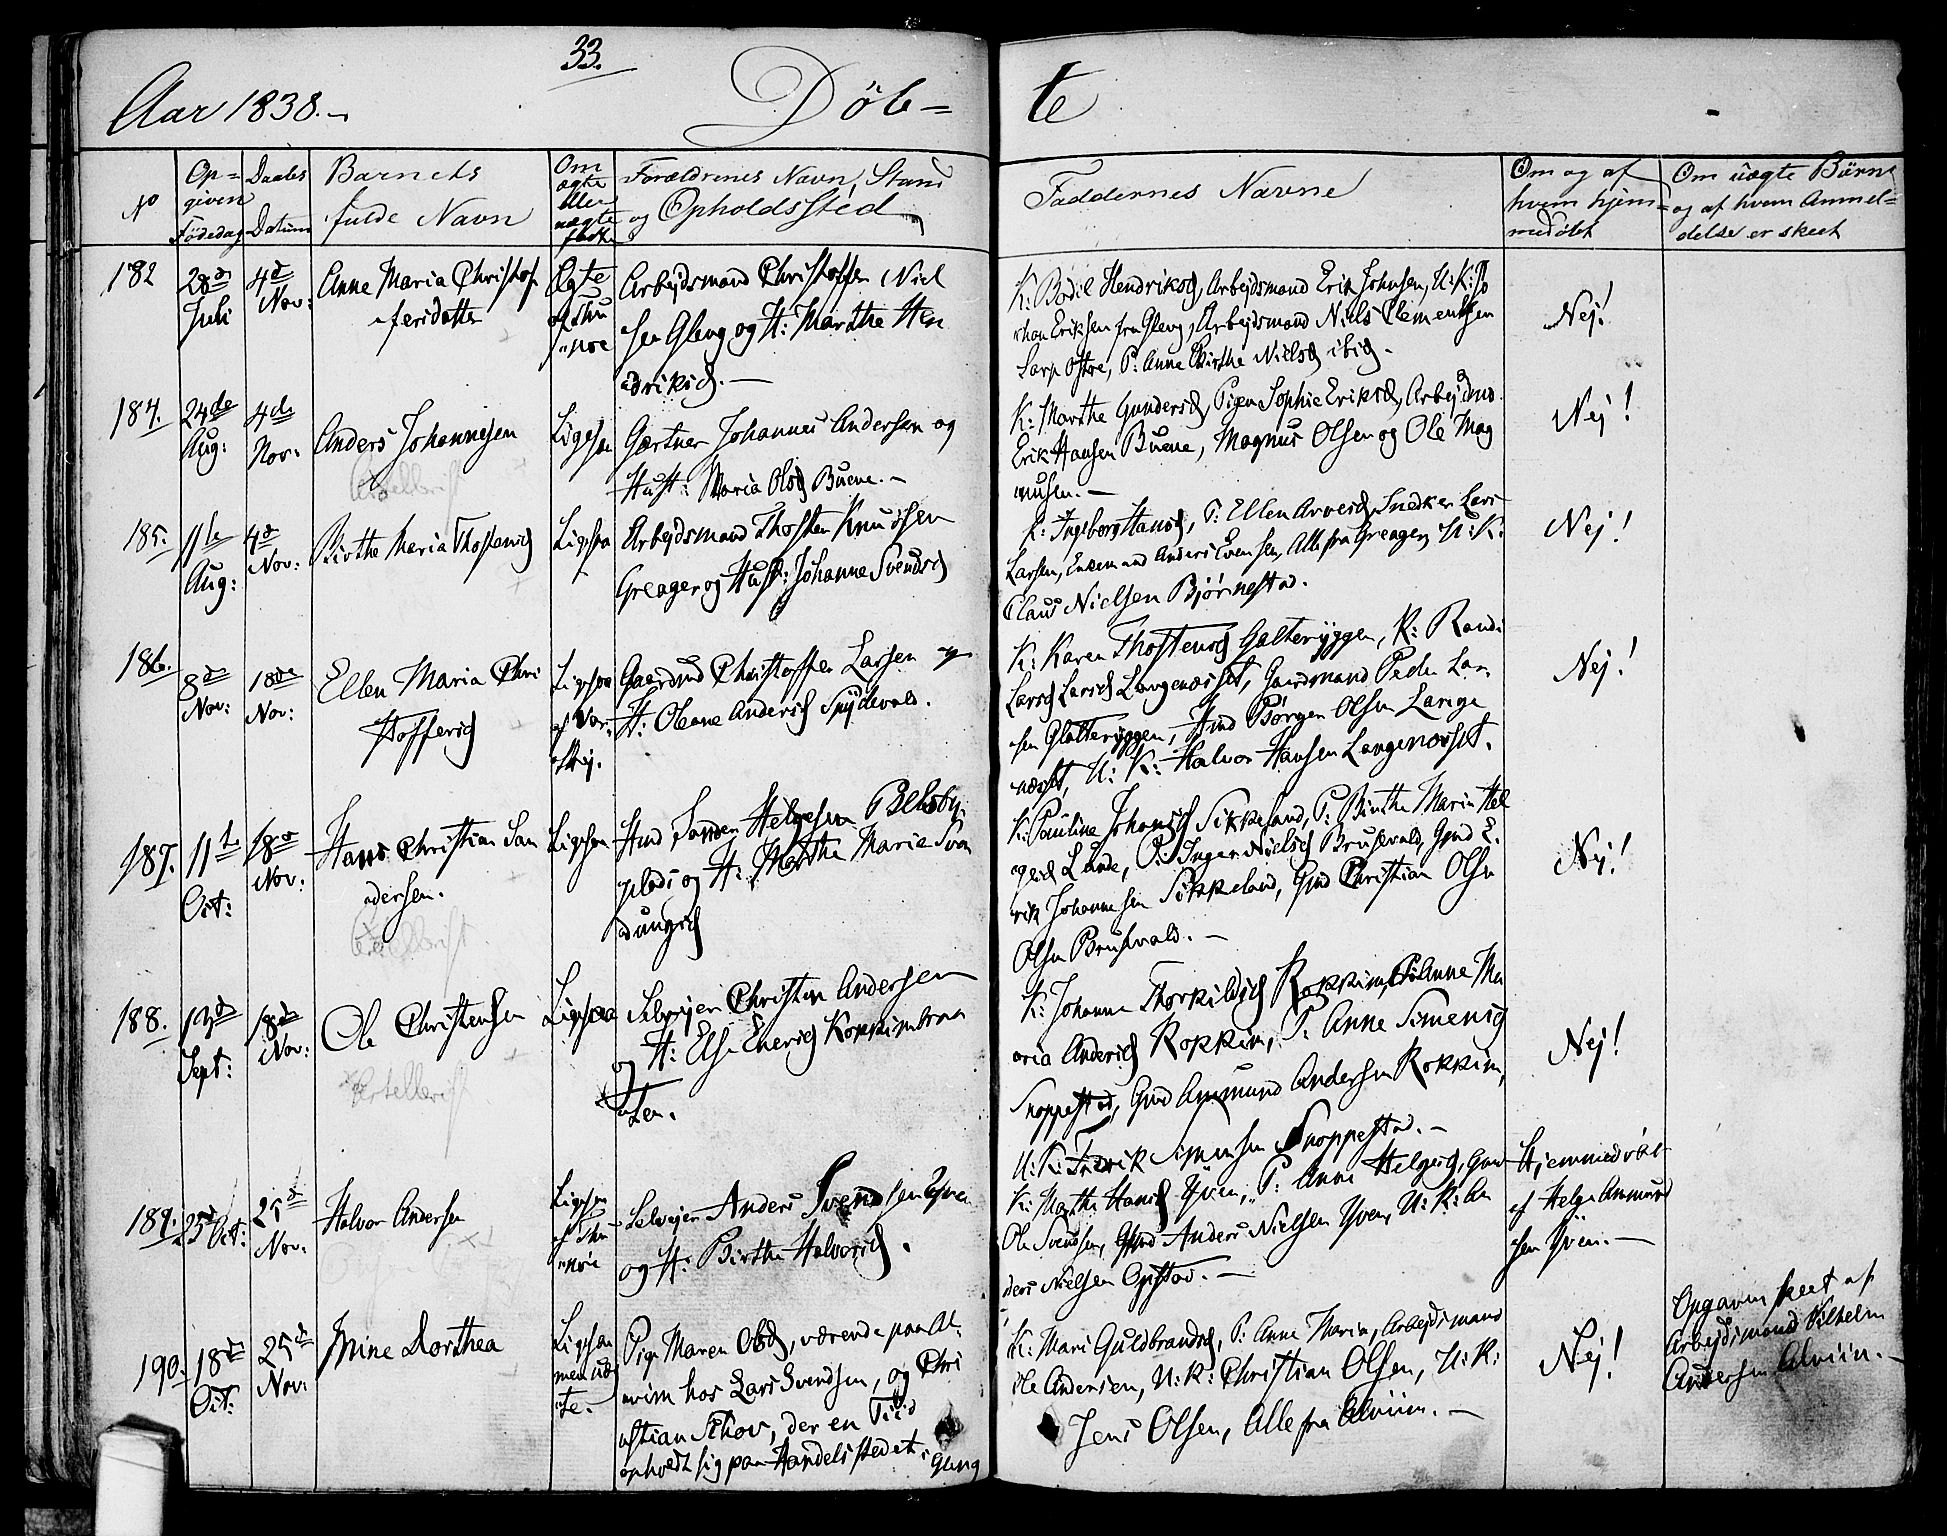 33.
Aar 1838.
Döb=
te
No
Op=
given
Födedag
Daabs
Datum
Barnets
fulde Navn
Om
ægte
eller
uægte
födt
Forældrenes Navn, Stand
og Opholdssted
Faddernes Navne
Om og af
hvem hjem=
medöbt
Om uægte Börn
og af hvem Anmel=
delse er skeet
182
28de
Juli
4de
Nov:
Anne Maria Christof
fersdatter
Ægte
Arbejdsmand Christoffer Niel
sen Gleng og H: Marthe Hen
driksd. —
K: Bodil Hendriksd, Arbejdsmand Erik Johnsen, U: K: Jo
han Eriksen fra Gleng, Arbejdsmand Niels Clementsen
Larp Östre, P: Anne Birthe Nielsd ibid. -
Nej!
184.
24de
Aug:
4de
Nov:
Anders Johannesen
Ligesaa
Gartner Johannes Andersen og
Hust: Maria Olsd Buene. —
K: Marthe Gundersd, Pigen Sophie Eriksd, Arbejdmd.
Erik Hansen Buene, Magnus Olsen og Ole Mag
nusen. —
Nej!
185.
11te
Aug:
4de
Nov:
Birthe Maria Thostensd
Ligesaa
Arbejdsmand Thosten Knudsen
Greager og Hust: Johanne Svendsd
K: Ingeborg Hansd, P: Ellen Arvesd, Snedker Lars
Larsen, Enkemand Anders Evensen, Alle fra Greager, U: K:
Claus Nielsen Björnestad.
Nej!
186.
8de
Nov:
18de
Nov:
Ellen Maria Chri
stoffersd
Ligesaa
af Var
Gaardmd Christoffer Larsen og
H: Oleane Andersd Spydevold.
K: Karen Thostensd Galteryggen, K: Randi
Larsd Larsd Langenæsset, Gaardmand Peder Lar
sen Glatteryggen, Hmd Börger Olsen Lange
næsset, U: K: Halvor Hansen Langenæsset.
Nej!
187.
11te
Oct:
18de
Nov:
Hans Christian San
dersen.
Ligesaa
Hmd Sander Helgesen Belsby
plads og H: Marthe Maria Svan
dungsd
K: Pauline Johansd Sikkeland, P: Birthe Maria Hel
gesd Lande, P: Inger Nielsd Brusevald, Gmd E
rik Johannesen Sikkeland, Gmd Christian Olsen
Olsen Brusevald. —
Nej!
188.
13de
Sept:
18de
Nov:
Ole Christensen
Ligesaa
Selvejer Christen Andersen
og H: Else Enersd Kokkimbraa
ten.
K: Johanne Thorkildsd Rokkim, P: Anne Ma
ria Andersd Rokkim, P: Anne Simensd
Snoppestad, Gmd Ammund Andersen Rokkim,
U: K: Fredrik Simensen Snoppestad. —
Nej!
189.
25de Oct:
25de
Nov:
Halvor Andersen
Ligesaa
Selvejer Anders Svendsen Yven
og H: Birthe Halvorsd.
K: Marthe Hansd Yven, P: Anne Helgesd, Gmd
Ole Svendsen, Gmd Anders Nielsen Yven, U: K: An
ders Nielsen Opstad. —
Hjemmedöbt
af Helge Ammund
sen Yven. —
190.
18de
Oct:
25de
Nov:
Mine Dorthea
Ligesaa
men uæg
te.
Pige Maren Olsd, værende paa Al
viim hos Lars Svendsen, og Chri
stian Schov, der en Tiid
opholdt sig paa Handelsstedet i Gleng
K: Mari Guldbrandsd, P: Anne Maria, Arbejdsmand
Ole Andersen, U: K: Christian Olsen, U: K:
Jens Olsen, Alle fra Alviim. —
Nej!
Opgaven skeet af
Arbejdsmand Vilhelm
Andersen Alviim. —